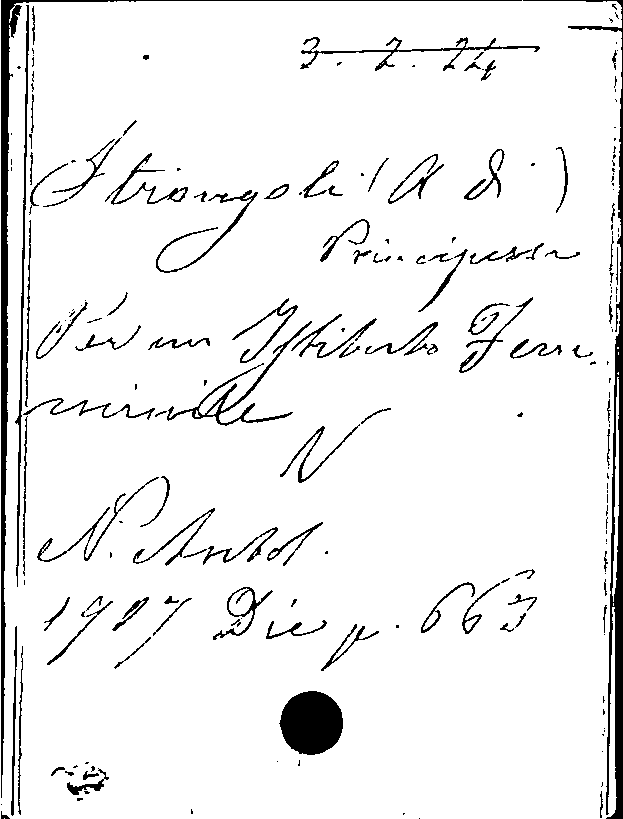 3. 2. 24
Strongoli (A di)
Principessa
Per un Istituto Fem
minile
V
N. Antol.
1907 Dic p. 663